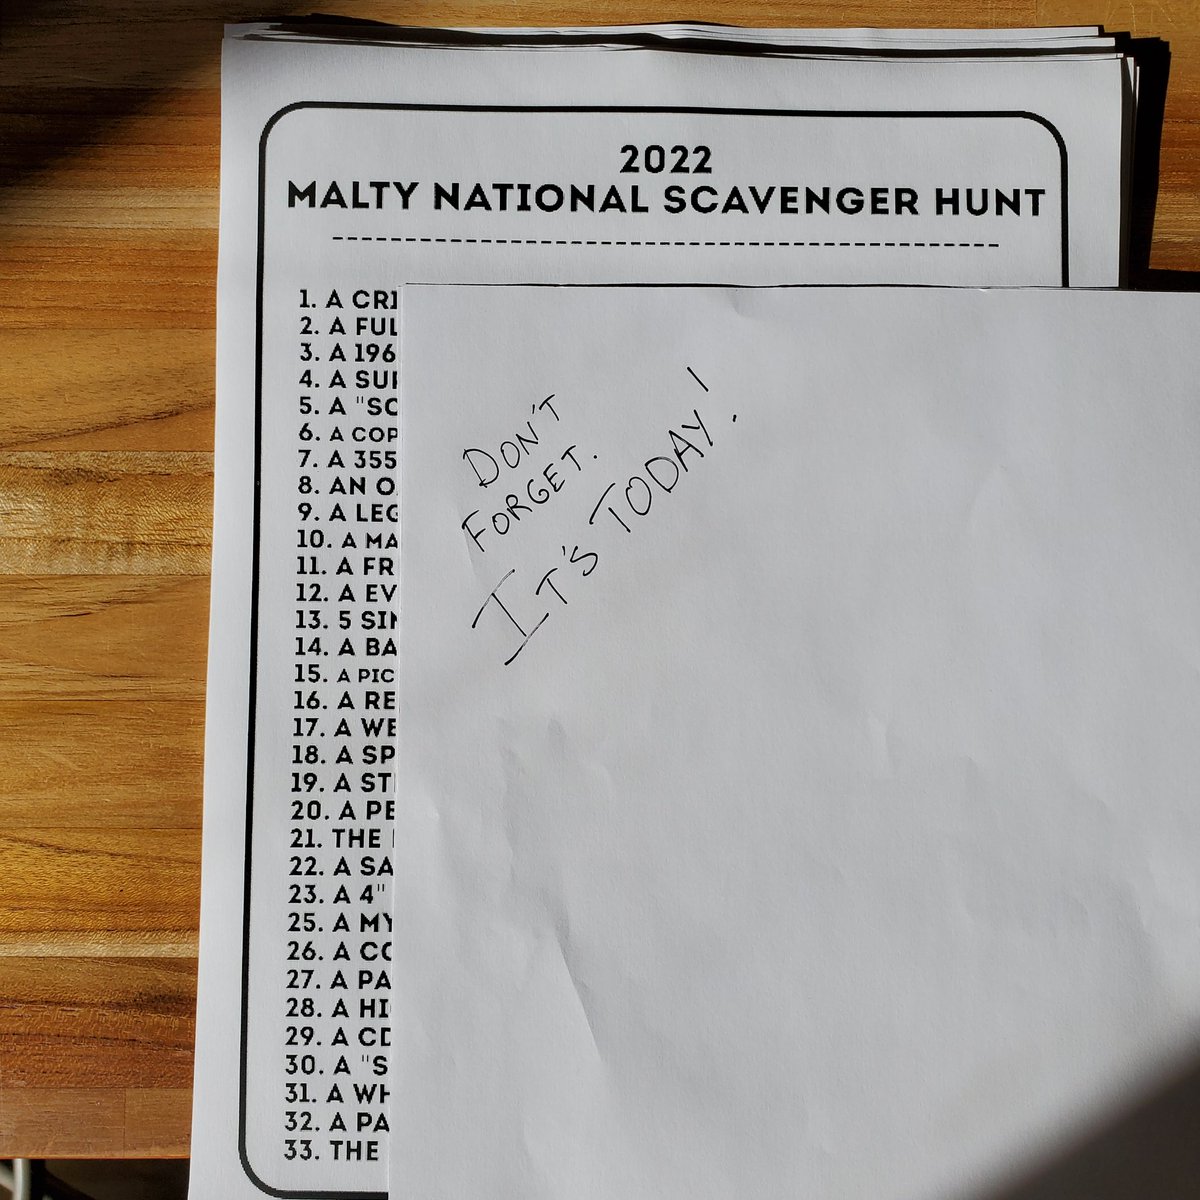 2022
MALTY NATIONAL SCAVENGER HUNT
1. A CRI
2. A FUL
3. A 196
4. A SUR
5. A "SC
6. A COP
7. A 355
8. AN O
9. A LEG
10. A MA
11. A FR
12. A EV
13. 5 SIN
14. A BA
15. A PIC
16. A RE
17. A WE
18. A SP
19. A ST
20. A PE
21. THE
22. A SA
23. A 4"
25. A MY
26. A CO
27. A PA
28. A HI
29. A CD
30. A "S
31. A WH
32. A PA
33. THE
DON'T
FORGET.
IT'S TODAY!